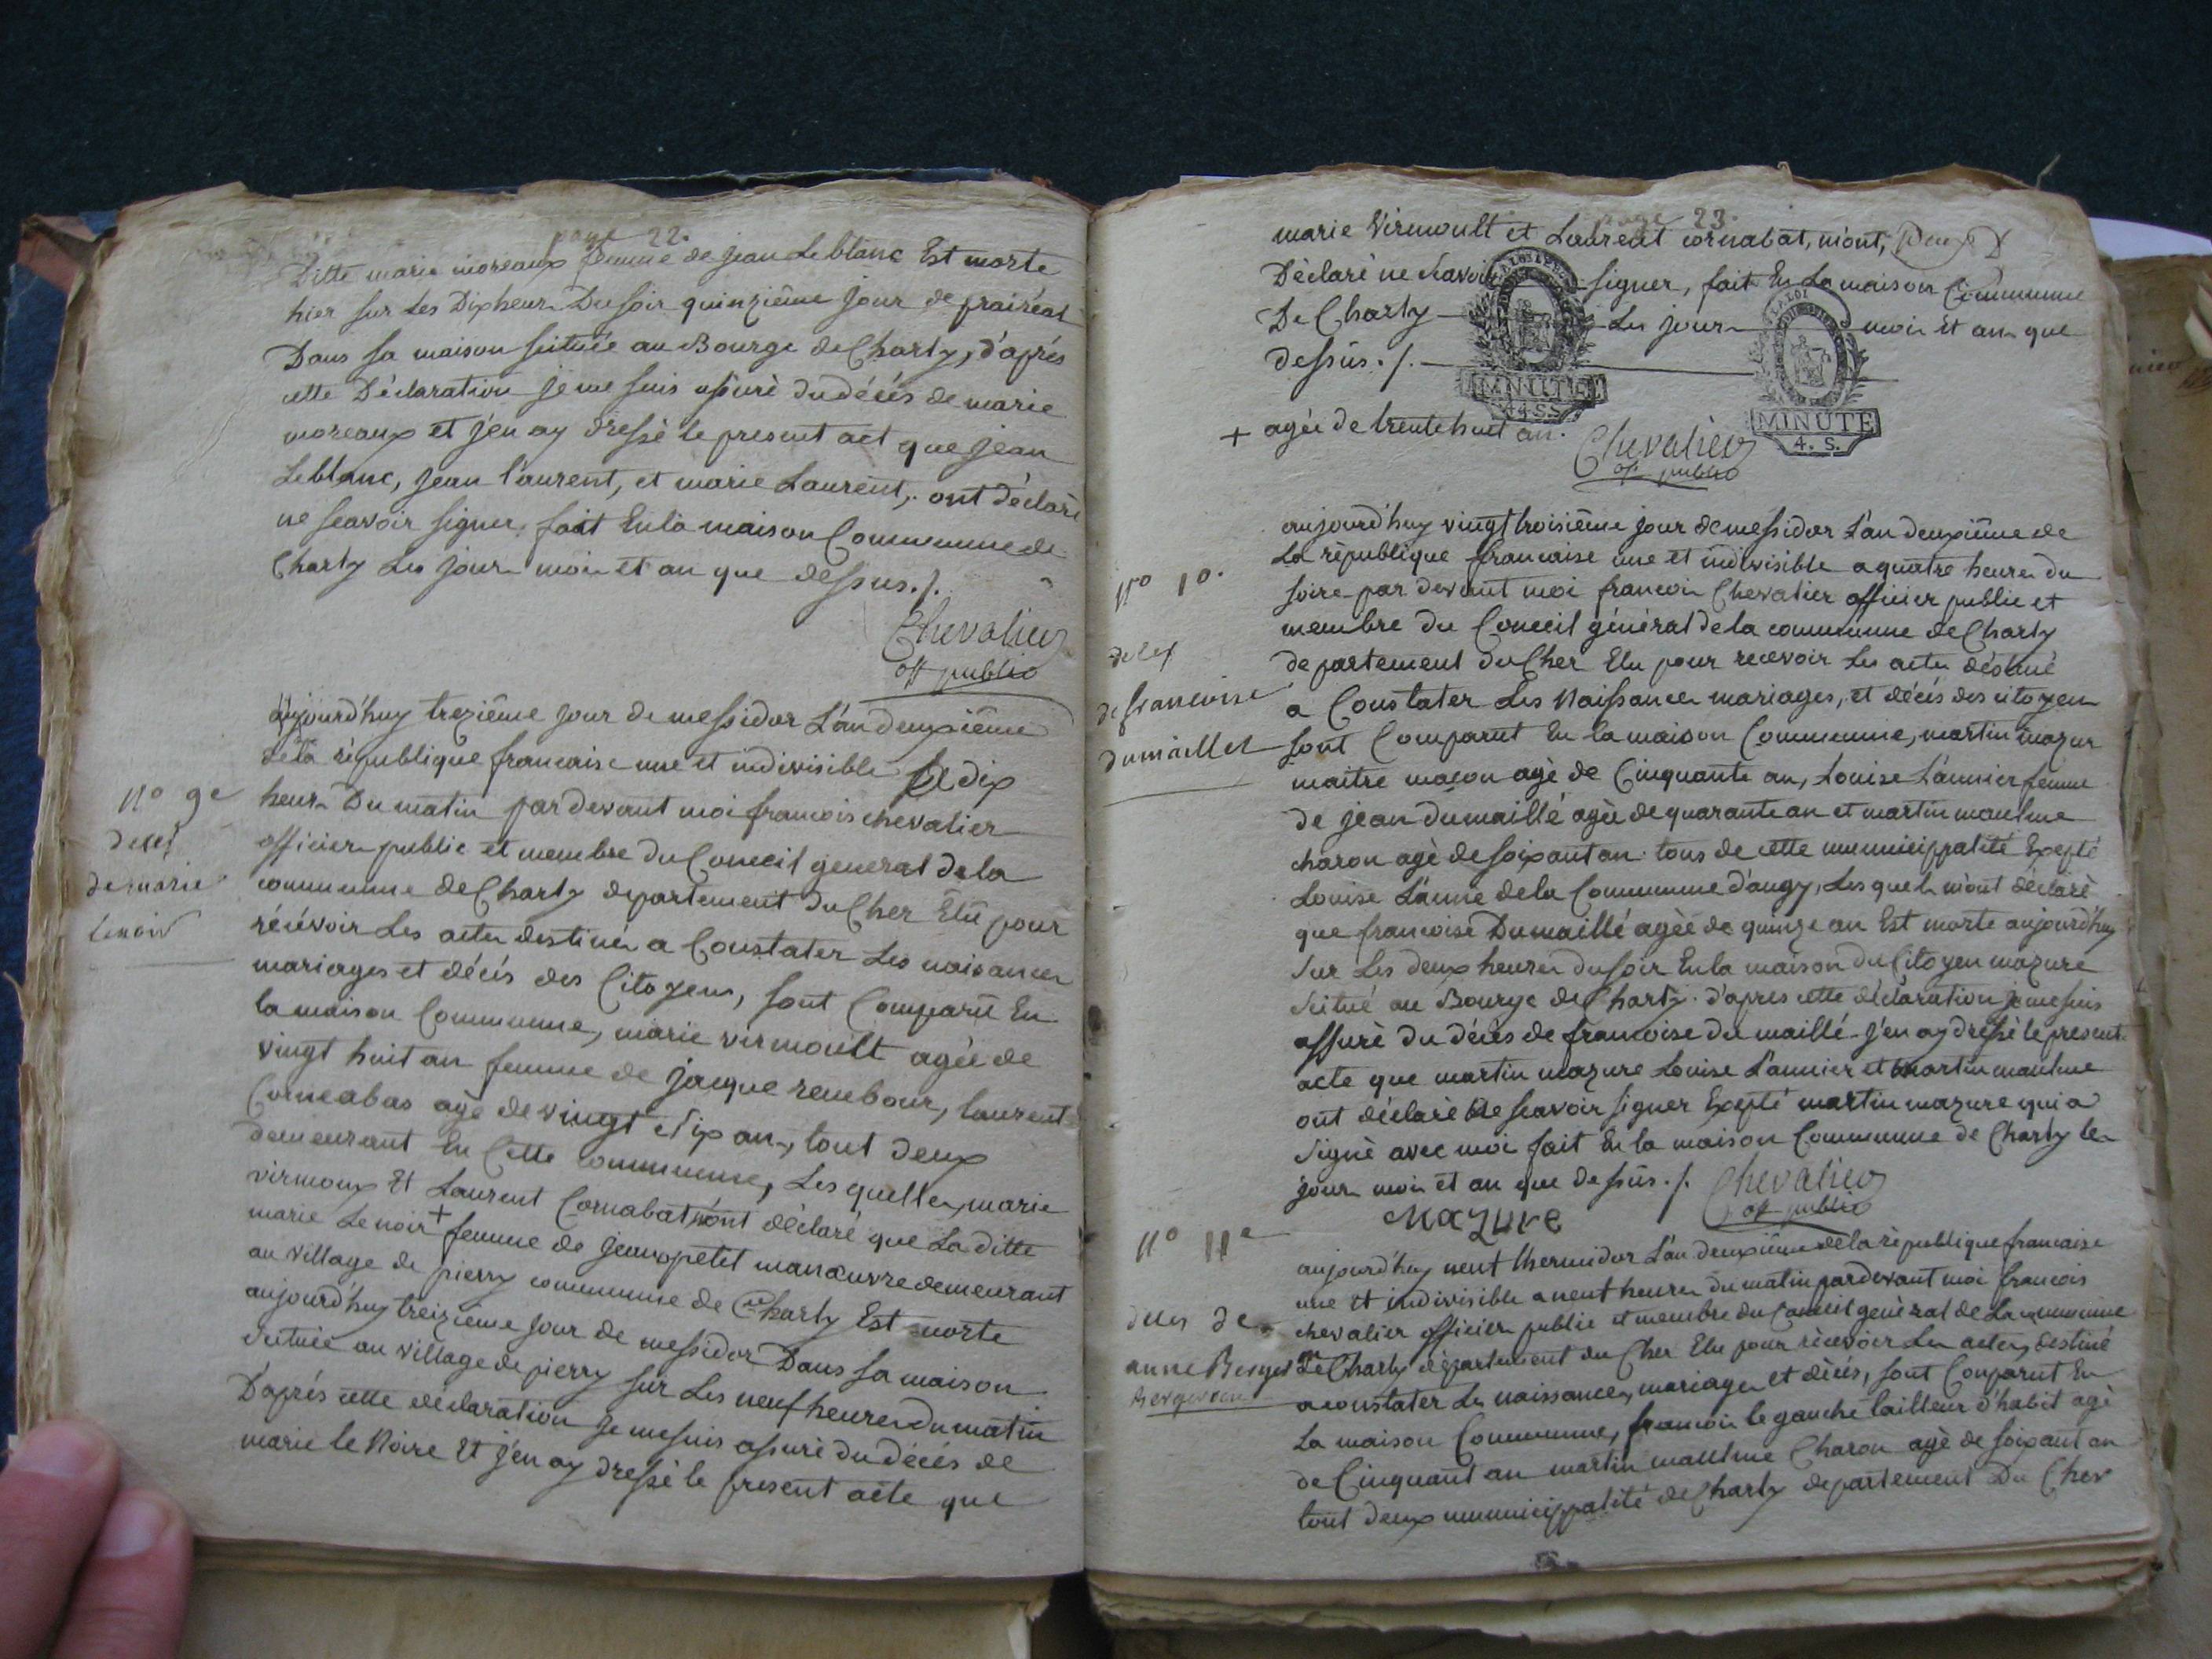 page 22.
Ditte marie moreaux femme de jean Leblanc Est morte
hier sur Les Dixheur Du soir quinziême jour de prairéal
Dans sa maison scituée au Bourge de Charly, d'aprés
cette Déclaration je me suis assuré du décés de marie
moreaux et j'en ay dressé le present act que jean
Leblanc, jean laurent, et marie Laurent, ont déclaré
ne scavoir signer, fait En la maison Commune de
Charly Les jour moi et an que dessus ./.
Chevalier
off public
aujourd'huy treziême jour de messidor L'an deuxiême
de la république francaise une et indivisible a dix
heur Du matin par devant moi francois chevalier
officier public et membre du Conceil general de la
commune de Charly departement du Cher Elu pour
récévoir Les actes destinés a Constater Les naisances
mariages et décés des Citoyens, sont Comparu En
la maison Commune, marie virmoult agée de
vingt huit an femme de jacque rembour, laurent
Corneabas agé de vingt Six an, tout deux
demeurant En Cette commune, Les quelles, marie
virmoux Et Laurent Cornabat m'ont déclaré que La ditte
marie Lenoir + femme de jean petit manœuvre demeurant
au village de pierry commune de Charly Est morte
aujourd'huy treiziême jour de messidor Dans sa maison
scituée au village de pierry sur Les neuf heures du matin
D'aprés cette déclaration je me suis assuré du décés de
marie le Noire Et j'en ay dressé le present acte que
no 9e
decés
de marie
lenoir
page 23.
marie Virmoult et Laurent cornabat, m'ont,
Déclaré ne scavoir signer, fait En La maison Commune
De Charly Les jour moi Et an que
dessus ./.
LA LOI
MINUTE
4. S.
LA LOI
MINUTE
4. S.
+ agée de trente huit an.
Chevalier
off public
no 10.
décés
de francoise
dumaillet
aujourd'huy vingt troisiême jour de messidor L'an deuxiême de
La république francaise une et indivisible a quatre heures du
soire par devant moi francois Chevalier officier public et
membre du Conceil général de la commune de Charly
departement du Cher Elu pour recevoir Les actes déstiné
a Constater Les Naissances mariages, et décés des citoyen
sont Comparut En la maison Commune, martin mazur
maitre macon agé de Cinquante an, Louise L'annier femme
de jean dumaillé agée de quarante an et martin maulme
charon agé de soixant an. tous de cette municippalité Exepté
Louise L'annié de la Commune d'augy, Les quels m'ont déclaré
que francoise Dumaillé agée de quinze an Est morte aujourd'huy
sur Les deux heures du soir En la maison du Citoyen mazure
scitué au Bourge de Charly. d'apres cette déclaration je me suis
assuré du décés de francoise du maillé j'en ay dressé le present
acte que martin mazure Louise L'annier et martin maulme
ont déclaré Ne scavoir signer Exepté martin mazure qui a
signé avec moi fait En la maison Commune de Charly les
jour moi et an que dessus ./. Chevalier
mazure off public
no 11e
deces de
anne Berger
aujourd'huy neuf thermidor L'an deuxiême de la république francaise
une et indivisible a neuf heures du matin par devant moi francois
chevalier officier public et membre du Conceil général de La commune
De Charly département du Cher Elu pour récevoir Les actes destiné
a constater Les naissances, mariages et décés, sont Comparut En
La maison Commune, francois le gauche tailleur d'habit agé
de Cinquant an martin maulme Charon agé de soixant an
tout deux municippalité de Charly departement Du Cher